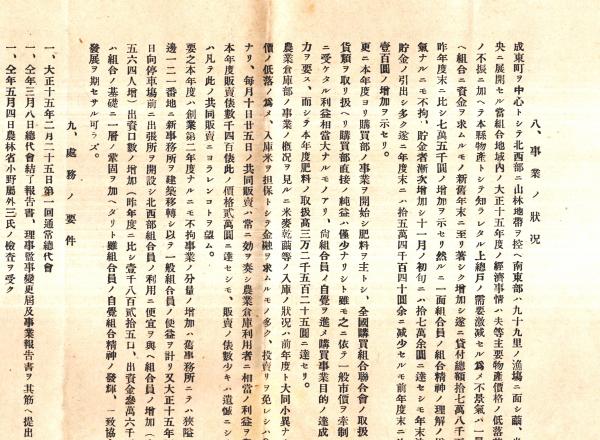 八、事業ノ狀況
成東町ヲ中心トシテ北西部ニ山林地帶ヲ控ヘ南東部ハ九十九里ノ漁場ニ面シ繭、米
央ニ展開セル當組合地域內ノ大正十五年度ノ經濟事情ハ夫等主要物產價格ノ低落
ノ不振ニ加ヘテ本縣物產トシテ知ラレタル上總戶ノ需要激減セル爲メ不景氣ハ一
ヘ組合ニ資金ヲ求ムルモノ新舊年末ニ至リ著シク增加シ遂ニ貸付總額拾七萬八千
昨年度末ニ比シ七萬五千圓ノ增加ヲ示セリ然ルニ一面組合員ノ組合精神ノ理解ノ
氣ナルニモ不拘、貯金者漸次增加シ十一月ノ初旬ニハ拾七萬余圓ニ達セシモ年末
貯金ノ引出シ多ク遂ニ年度末ニハ拾五萬四千百四十圓余ニ減少セルモ前年度末ニ
壹百圓ノ增加ヲ示セリ。
更ニ本年度ヨリ購買部ノ事業ヲ開始シ肥料ヲ主トシ、全國購買組合聯合會ノ取扱
貨類ヲ取リ扱ヘリ購買部直接ノ純益ハ僅少ナリシト雖モ之ニ依テ一般市價ヲ牽制
ニ受ケタル利益相當大ナルモノアリ、尙組合員ノ自覺ヲ進メ購買事業目的ノ達成
力ヲ要ス、而シテ本年度肥料ノ取扱高三万二千五百二十五圓ニ達セリ。
農業倉庫部ノ事業ノ槪況ヲ見ルニ米麥乾繭等ノ入庫ノ狀況ハ前年度ト大同小異ナ
價ノ低落ノ爲メ、入庫米ヲ担保トシテ金融ヲ求ムルモノ多ク、投賣リヲ免レシハ
ナリ、每月十日廿五日ノ共同販賣ハ常ニ効ヲ奏シ農業倉庫利用者ニ相當ノ利益ヲ
本年度販賣俵數千四百俵此ノ價格貳萬圓ニ達セシモ、販賣ノ俵數少キハ遺憾ニシ
ハ凡テ此ノ共同販賣ニヨラレンコトヲ望ム。
要之本年度ハ創業第二年度ナルニモ不拘事業ノ分量ノ增加ハ舊事務所ニテハ狹隘
邊一二一番地ニ新事務所ヲ建築移轉シ以テ一般組合員ノ便益ヲ計リ又大正十五年
日向停車場前ニ出張所ヲ開設シ北西部組合員ノ利用ニ便宜ヲ與ヘ組合員ノ增加（
五六四人增）出資口數ノ增加（昨年度ニ比シ壹千八百貳拾五口、出資金參萬六千
ハ組合ノ基礎ニ一層ノ鞏固ヲ加ヘタリト雖組合員ノ自覺組合精神ノ發輝、一致協
發展ヲ期セサル可ラズ。
九、處務ノ要件
一、大正十五年二月二十五日第一回通常總代會
一、仝年三月八日總代會結了報告書、理事監事變更屆及事業報告書ヲ其筋ヘ提出
一、仝年五月四日農林省小野屬外三氏ノ檢査ヲ受ク